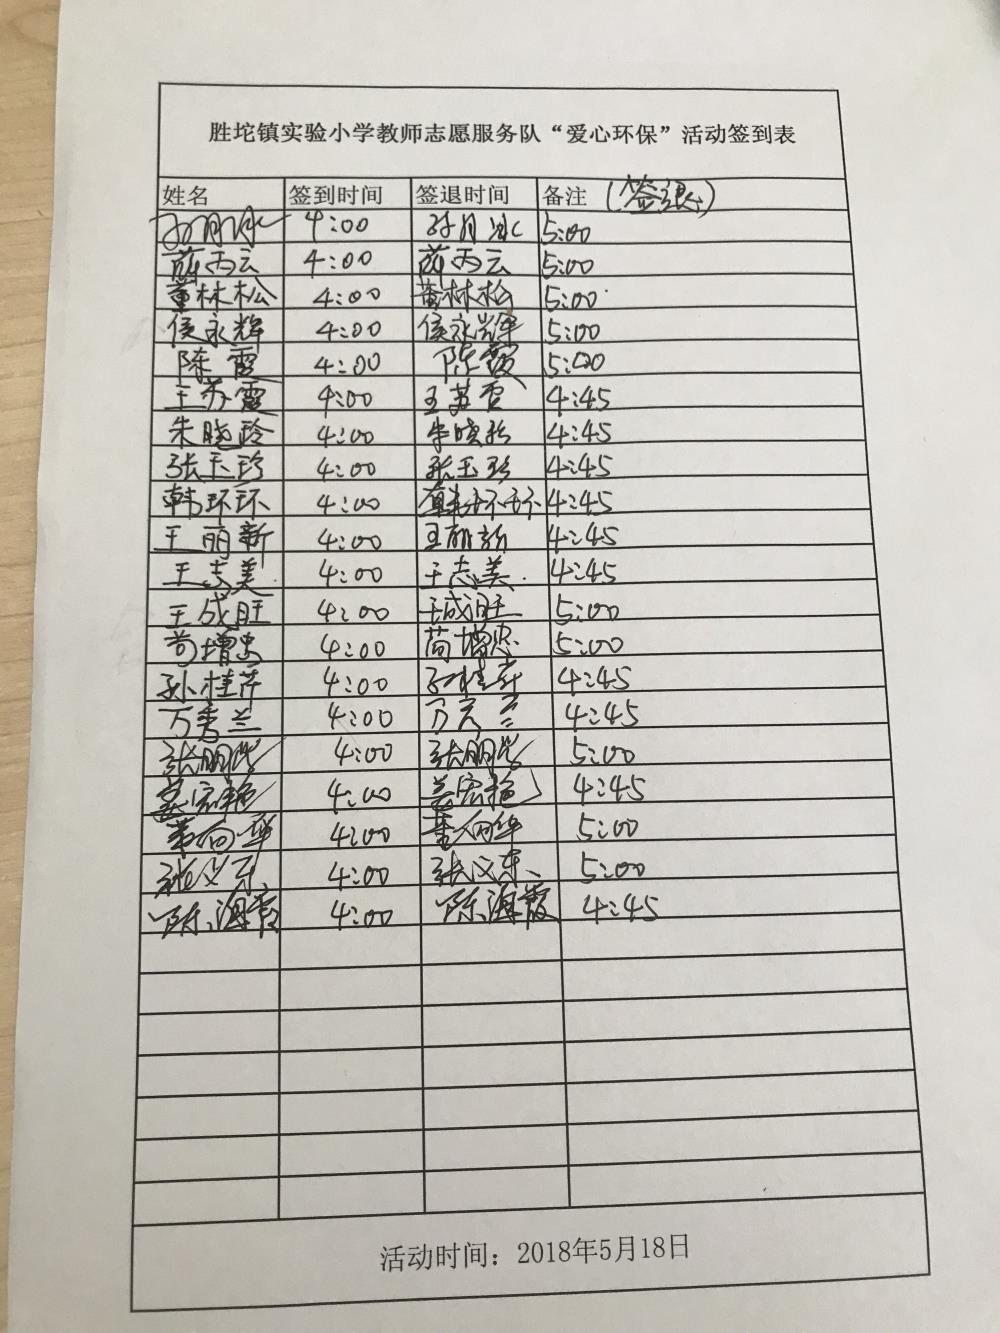 胜坨镇实验小学教师志愿服务队“爱心环保”活动签到表
姓名 签到时间 签退时间 备注 (签退)
孙月冰 4:00 孙月冰 5:00
苘丙云 4:00 苘丙云 5:00
董林松 4:00 董林松 5:00
侯永辉 4:00 侯永辉 5:00
陈霞 4:00 陈霞 5:00
王苏霞 4:00 王苏霞 4:45
朱晓玲 4:00 朱晓玲 4:45
张玉珍 4:00 张玉珍 4:45
韩环环 4:00 韩环环 4:45
王丽新 4:00 王丽新 4:45
王志美 4:00 王志美 4:45
王成旺 4:00 王成旺 5:00
苟增忠 4:00 苟增忠 5:00
孙桂芹 4:00 孙桂芹 4:45
万秀兰 4:00 万秀兰 4:45
张朋 4:00 张朋 5:00
姜宏艳 4:00 姜宏艳 4:45
董向华 4:00 董向华 5:00
张义东 4:00 张义东 5:00
陈海霞 4:00 陈海霞 4:45
活动时间：2018年5月18日